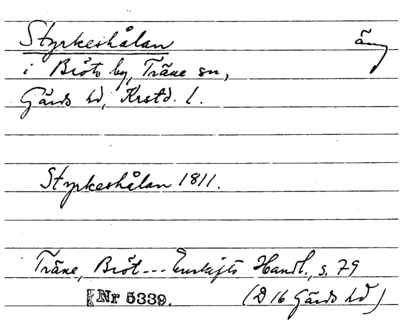 Styrkeshålan äng
i Bröts by, Träne sn,
Gärds hd, Krstd. l.
Styrkeshålan 1811.
Träne, Bröt --- Enskifts Handl., s. 79
Nr 5339. (D 16 Gärds hd)